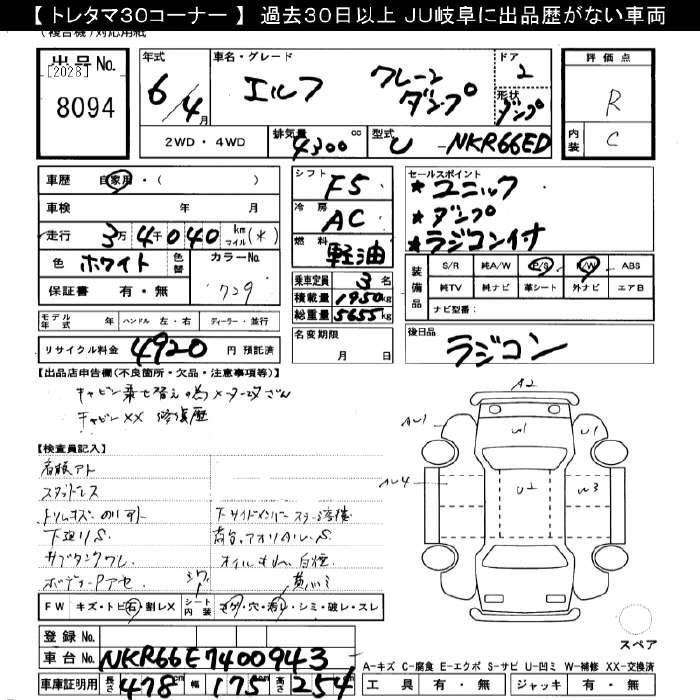 【 トレタマ30コーナー 】 過去30日以上 JU岐阜に出品歴がない車両
(複合機)対応用紙
出品No.
[2028]
8094
年式
6/4月
車名・グレード
エルフ クレーン ダンプ
ドア
2
形状
ダンプ
評価点
R
内装
C
2WD・4WD
排気量
4300cc
型式
U-NKR66ED
車歴 自家用・( )
車検 年 月
走行 3万4千040 km マイル(*)
色 ホワイト 色替 カラーNo. 729
保証書 有・無
モデル年式 年 ハンドル 左・右 ディーラー・並行
リサイクル料金 4920 円 預託済
シフト F5
冷房 AC
燃料 軽油
乗車定員 3名
積載量 1950kg
総重量 5655kg
名変期限 月 日
セールスポイント
★ユニック
★ダンプ
★ラジコン付
装備品
S/R 純A/W P/S P/W ABS
純TV 純ナビ 革シート 外ナビ エアB
ナビ型番:
後日品
ラジコン
【出品店申告欄(不良箇所・欠品・注意事項等)】
キャビン乗せ替えの為メーター改ざん
キャビンXX 修復歴
【検査員記入】
看板アト
スタッドレス
下廻りS
サブタンクワレ
オイルもれ 白煙
ボディーPアセ
シワ
黄バミ
FW キズ・トビ石・割レX シート内装 コゲ・穴・汚レ・シミ・破レ・スレ
登録No.
車台No. NKR66E7400943
車庫証明用 長さ 478 cm 幅 175 cm 高さ 254 cm
A2
AU1
U1
U1
AU4
U2
W3
スペア
A-キズ C-腐食 E-エクボ S-サビ U-凹ミ W-補修 XX-交換済
工具 有・無 ジャッキ 有・無